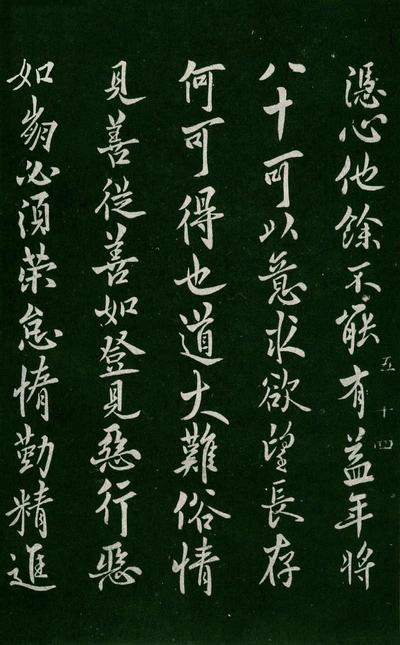 憑心他餘不能有益年將
八十可以意求欲望長存
何可得也道大難俗情
見善從善如登見惡行惡
如崩必須榮怠惰勤精進
五十四